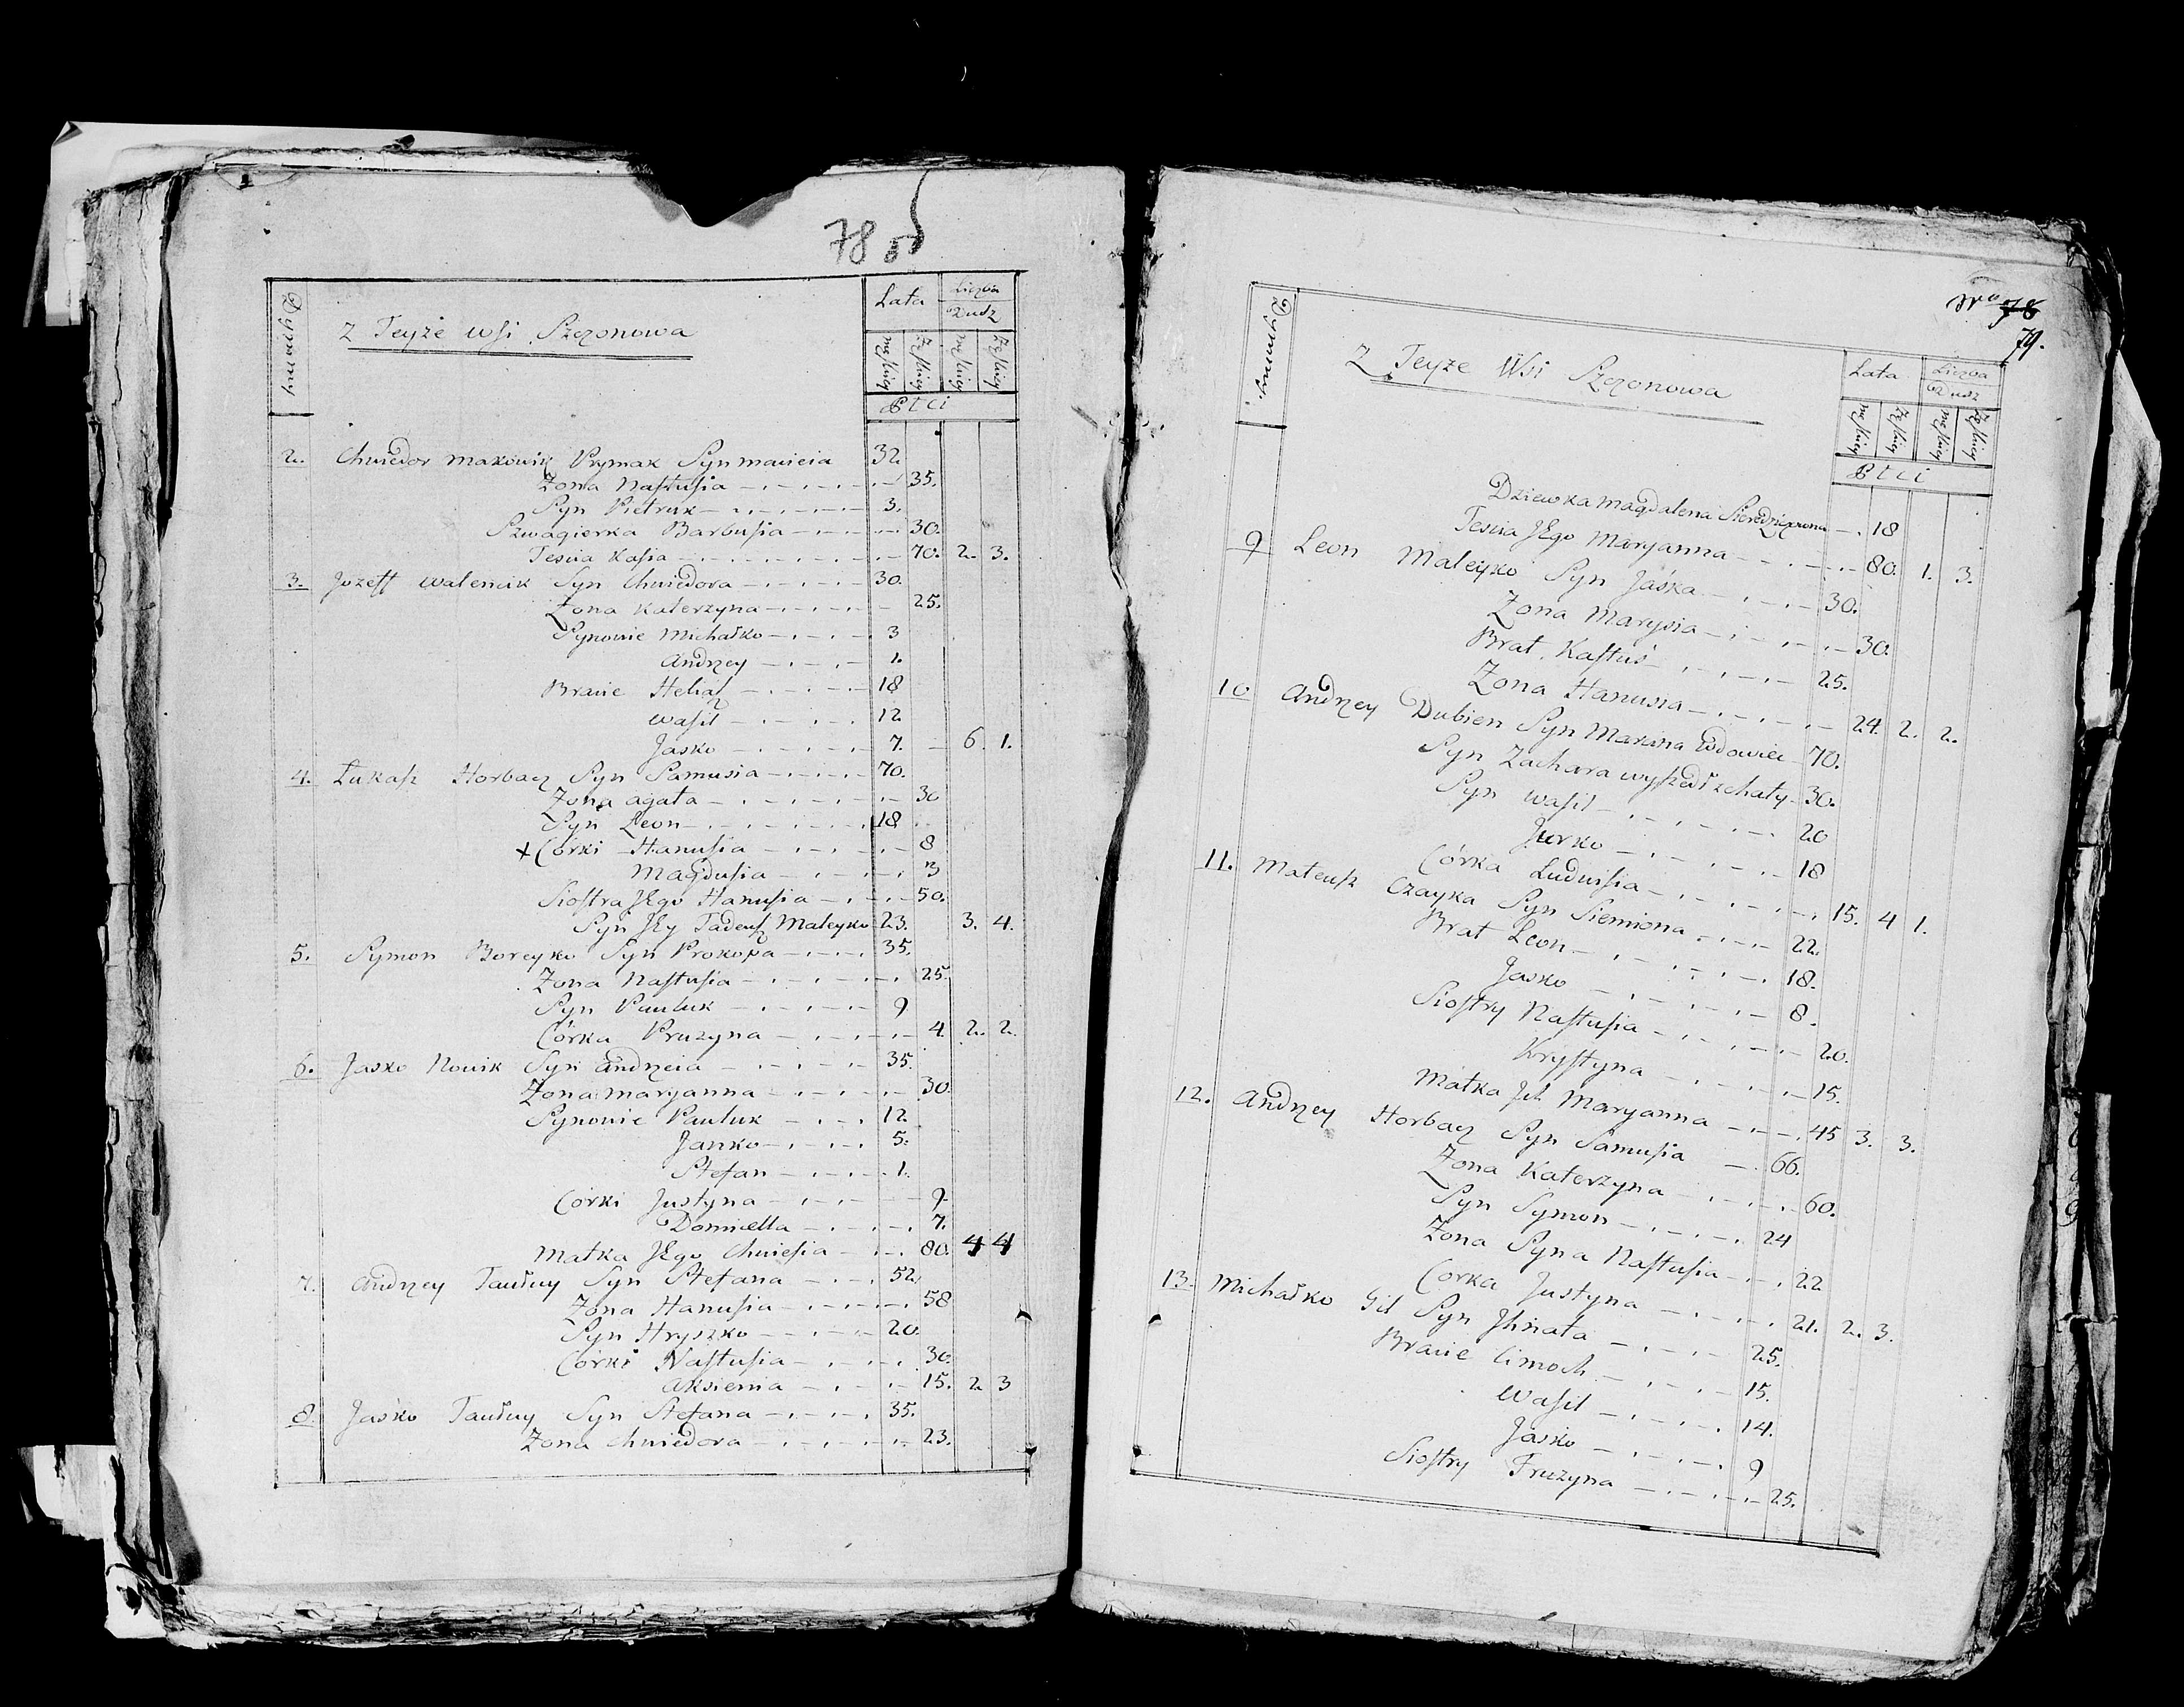 78 об
Dymy
Z Teyże wsi Szczonowa
Lata
Liczba
Dusz
męskiey
żeskiey
męskiey
żeskiey
Płci
2. Chwiedor makowik Prymak Syn macieia 32
Żona Nastusia 35.
Syn Pietruk 3.
Szwagierka Barbusia 30.
Teścia Kasia 70. 2. 3.
3. Jozeff walencik Syn Chwiedora 30.
Żona Katerzyna 25.
Synowie Michałko 3
Andrzey 1.
Bracie Heliasz 18
wasil 12
Jasko 7. 6. 1.
4. Łukasz Horbacz Syn Samusia 70.
Żona agata 30
Syn Leon 18
x Córki Hanusia 8
Magdusia 3
Siostra JEgo Hanusia 50.
Syn JEy Tadeusz Maleyko 23. 3. 4.
5. Symon Boreyko Syn Prokopa 35.
Żona Nastusia 25.
Syn Pauluk 9
Córka Pruzyna 4. 2. 2.
6. Jasko Nowik Syn andrzeia 35.
Żona maryanna 30.
Synowie Pauluk 12.
Janko 5.
Stefan 1.
Córki Justyna 9.
Domicella 7.
Matka JEgo Chwiesia 80. 4 4
7. Andrzey Taułuy Syn Stefana 52.
Żona Hanusia 58
Syn Hryszko 20.
Córki Nastusia 30.
Aksienia 15. 2 3
8. Jaśko Taułuy Syn Stefana 35.
Żona Chwiedora 23.
78
79.
Dymy
Z Teyże Wsi Szczonowa
Lata
Liczba
Dusz
męskiey
żeskiey
męskiey
żeskiey
Płci
Dziewka Magdalena 18
Teścia JEgo Maryanna 80. 1. 3.
9 Leon Maleyko Syn Jaśka 30.
Żona Marysia 30.
Brat Kastuś 25.
Żona Hanusia 24. 2. 2.
10 Andrzey Dubien Syn Marcina Wdowiec 70.
Syn Zachara wyszedł z chaty 30.
Syn wasil 20
Jurko 18
Córka Ludwisia 15. 4 1.
11. Mateusz Czayka Syn Siemiona 22.
Brat Leon 18.
Jasko 8.
Siostry Nastusia 20.
Krystyna 15.
Matka Jch Maryanna 45 3. 3.
12. Andrzey Horbacz Syn Samusia 66.
Żona Katerzyna 60.
Syn Symon 24
Żona Syna Nastusia 22
Corka Justyna 21. 2. 3.
13. Michałko Gil Syn Jhnata 25.
Bracie Cimoch 15.
Wasil 14.
Jasko 9
Siostry Fruzyna 25.